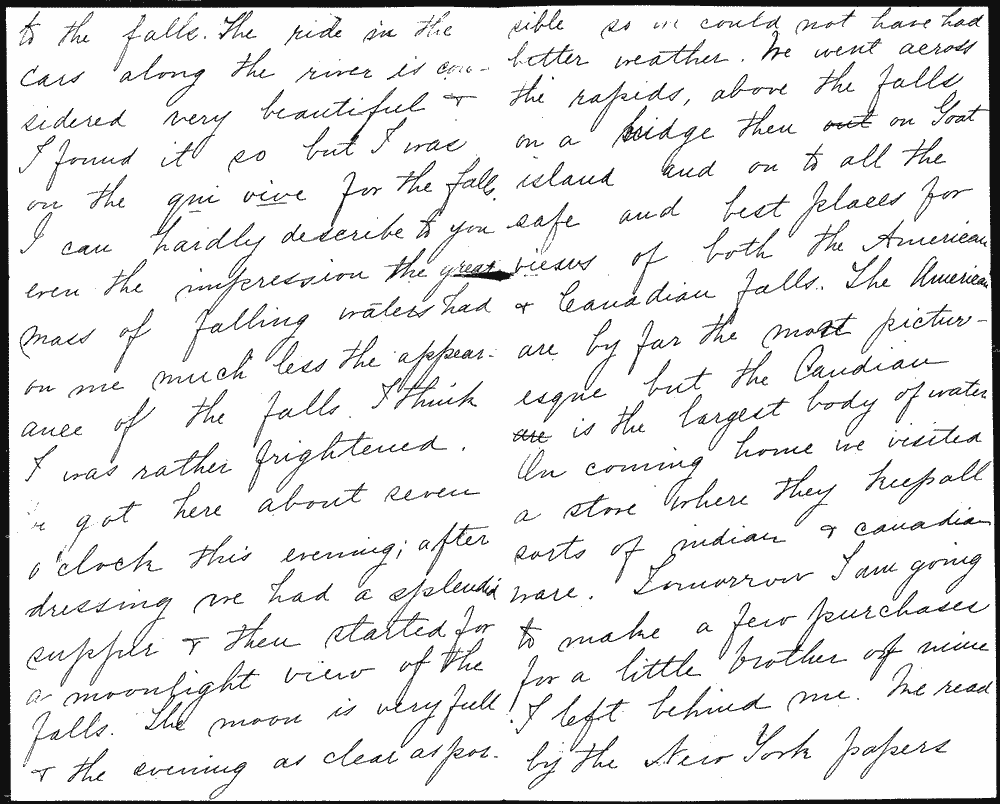 to the falls. The ride in the
cars along the river is con-
sidered very beautiful &
I found it so but I was
on the qui vive for the falls.
I can hardly describe to you
even the impression the great
mass of falling waters had
on me much less the appear-
ance of the falls. I think
I was rather frightened.
got here about seven
o'clock this evening; after
dressing we had a splendid
supper & then started for
a moonlight view of the
falls. The moon is very full
& the evening as clear as pos-
sible so we could not have had
better weather. We went across
the rapids, above the falls
on a bridge then out on Goat
island and on to all the
safe and best places for
views of both the American
& Canadian falls. The American
are by far the most pictur-
esque but the Candian
are is the largest body of water
On coming home we visited
a store where they keep all
sorts of indian & canadian
ware. Tomorrow I am going
to make a few purchases
for a little brother of mine
I left behind me. We read
by the New York papers